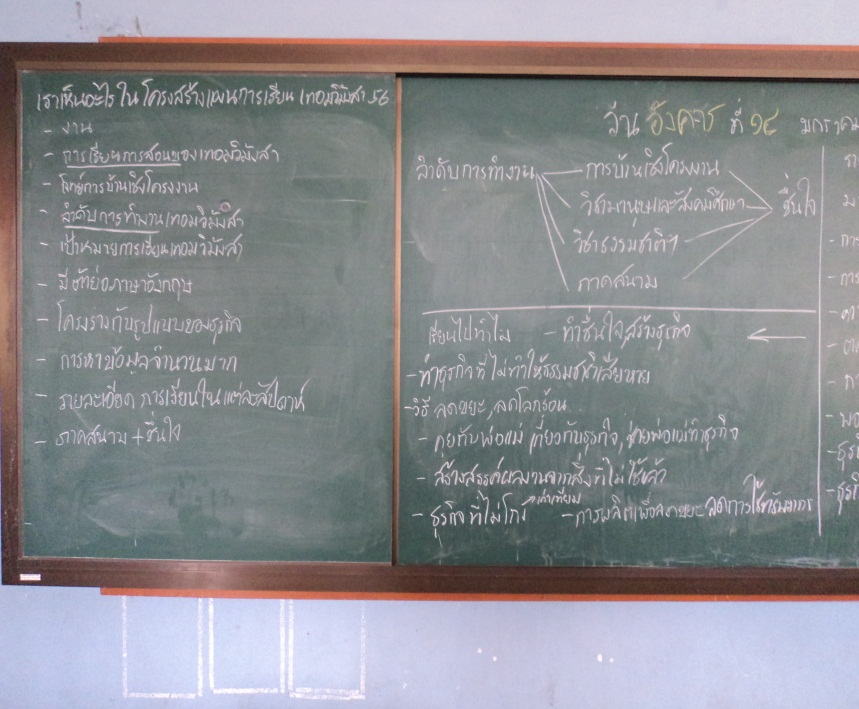 เราเห็นอะไรในโครงสร้างแผนการเรียน เทอมวิมังสา 56
- งาน
- การเรียนการสอนของเทอมวิมังสา
- โจทย์การบ้านเชิงโครงงาน
- ลำดับการทำงานเทอมวิมังสา
- เป้าหมายการเรียนเทอมวิมังสา
- มีตัวย่อภาษาอังกฤษ
- โครงงานกับรูปแบบของธุรกิจ
- การหาข้อมูลจำนวนมาก
- รายละเอียด การเรียนในแต่ละสัปดาห์
- ภาคสนาม + ชื่นใจ
วัน อังคาร ที่ ๑๔ มกราคม
ลำดับการทำงาน
การบ้านเชิงโครงงาน
วิชามานุษและสังคมศึกษา
วิชาธรรมชาติฯ
ภาคสนาม
ชื่นใจ
เรียนไปทำไม - ทำชื่นใจ, สร้างธุรกิจ
- ทำธุรกิจที่ไม่ทำให้ธรรมชาติเสียหาย
- วิธี ลดขยะ, ลดโลกร้อน
- คุยกับพ่อแม่ เกี่ยวกับธุรกิจ, ช่วยพ่อแม่ทำธุรกิจ
- สร้างสรรค์ผลงานจากสิ่งที่ไม่ใช้แล้ว
- ธุรกิจ ที่ไม่โกง เท่าเทียม - การผลิตเพื่อลดขยะ ลดการใช้ทรัพยากร